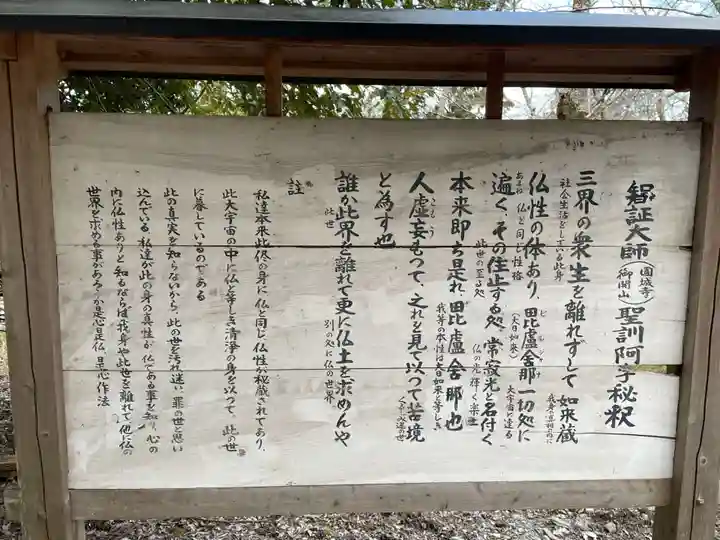 智証大師(園城寺御開山)聖訓阿字秘釈
三界の衆生を離れずして如来蔵
社会生活をしている此身
仏性の体あり、毘盧舎那一切処に
あまね 仏と同じ性格
ビルシャナ
(大日如来)
大宇宙に達る
遍く、その住止する処、常寂光と名付く
此世の至る処
仏の光輝く楽土
本来即ち是れ毘盧舎那也
我等の本性は大日如来と等しき
人虚妄もって、之れを見て以つて苦境
こもう
くるしみ迷の世
と為す也
誰か此界を離れて更に仏土を求めんや
此世
別の処に仏の世界
註
私達本来此侭の身に仏と同じ仏性が秘蔵されてあり、
此大宇宙の中に仏と等しき清浄の身を以つて、此の世
に暮しているのである
此の真実を知らないから、此の世を汚れ迷い罪の世と思い
込んでいる 私達が此の身の真性が仏である事を知り、心の
内に仏性ありと知るならば我身や此世を離れて他に仏の
世界を求める事があろうか是心是仏、是心作法